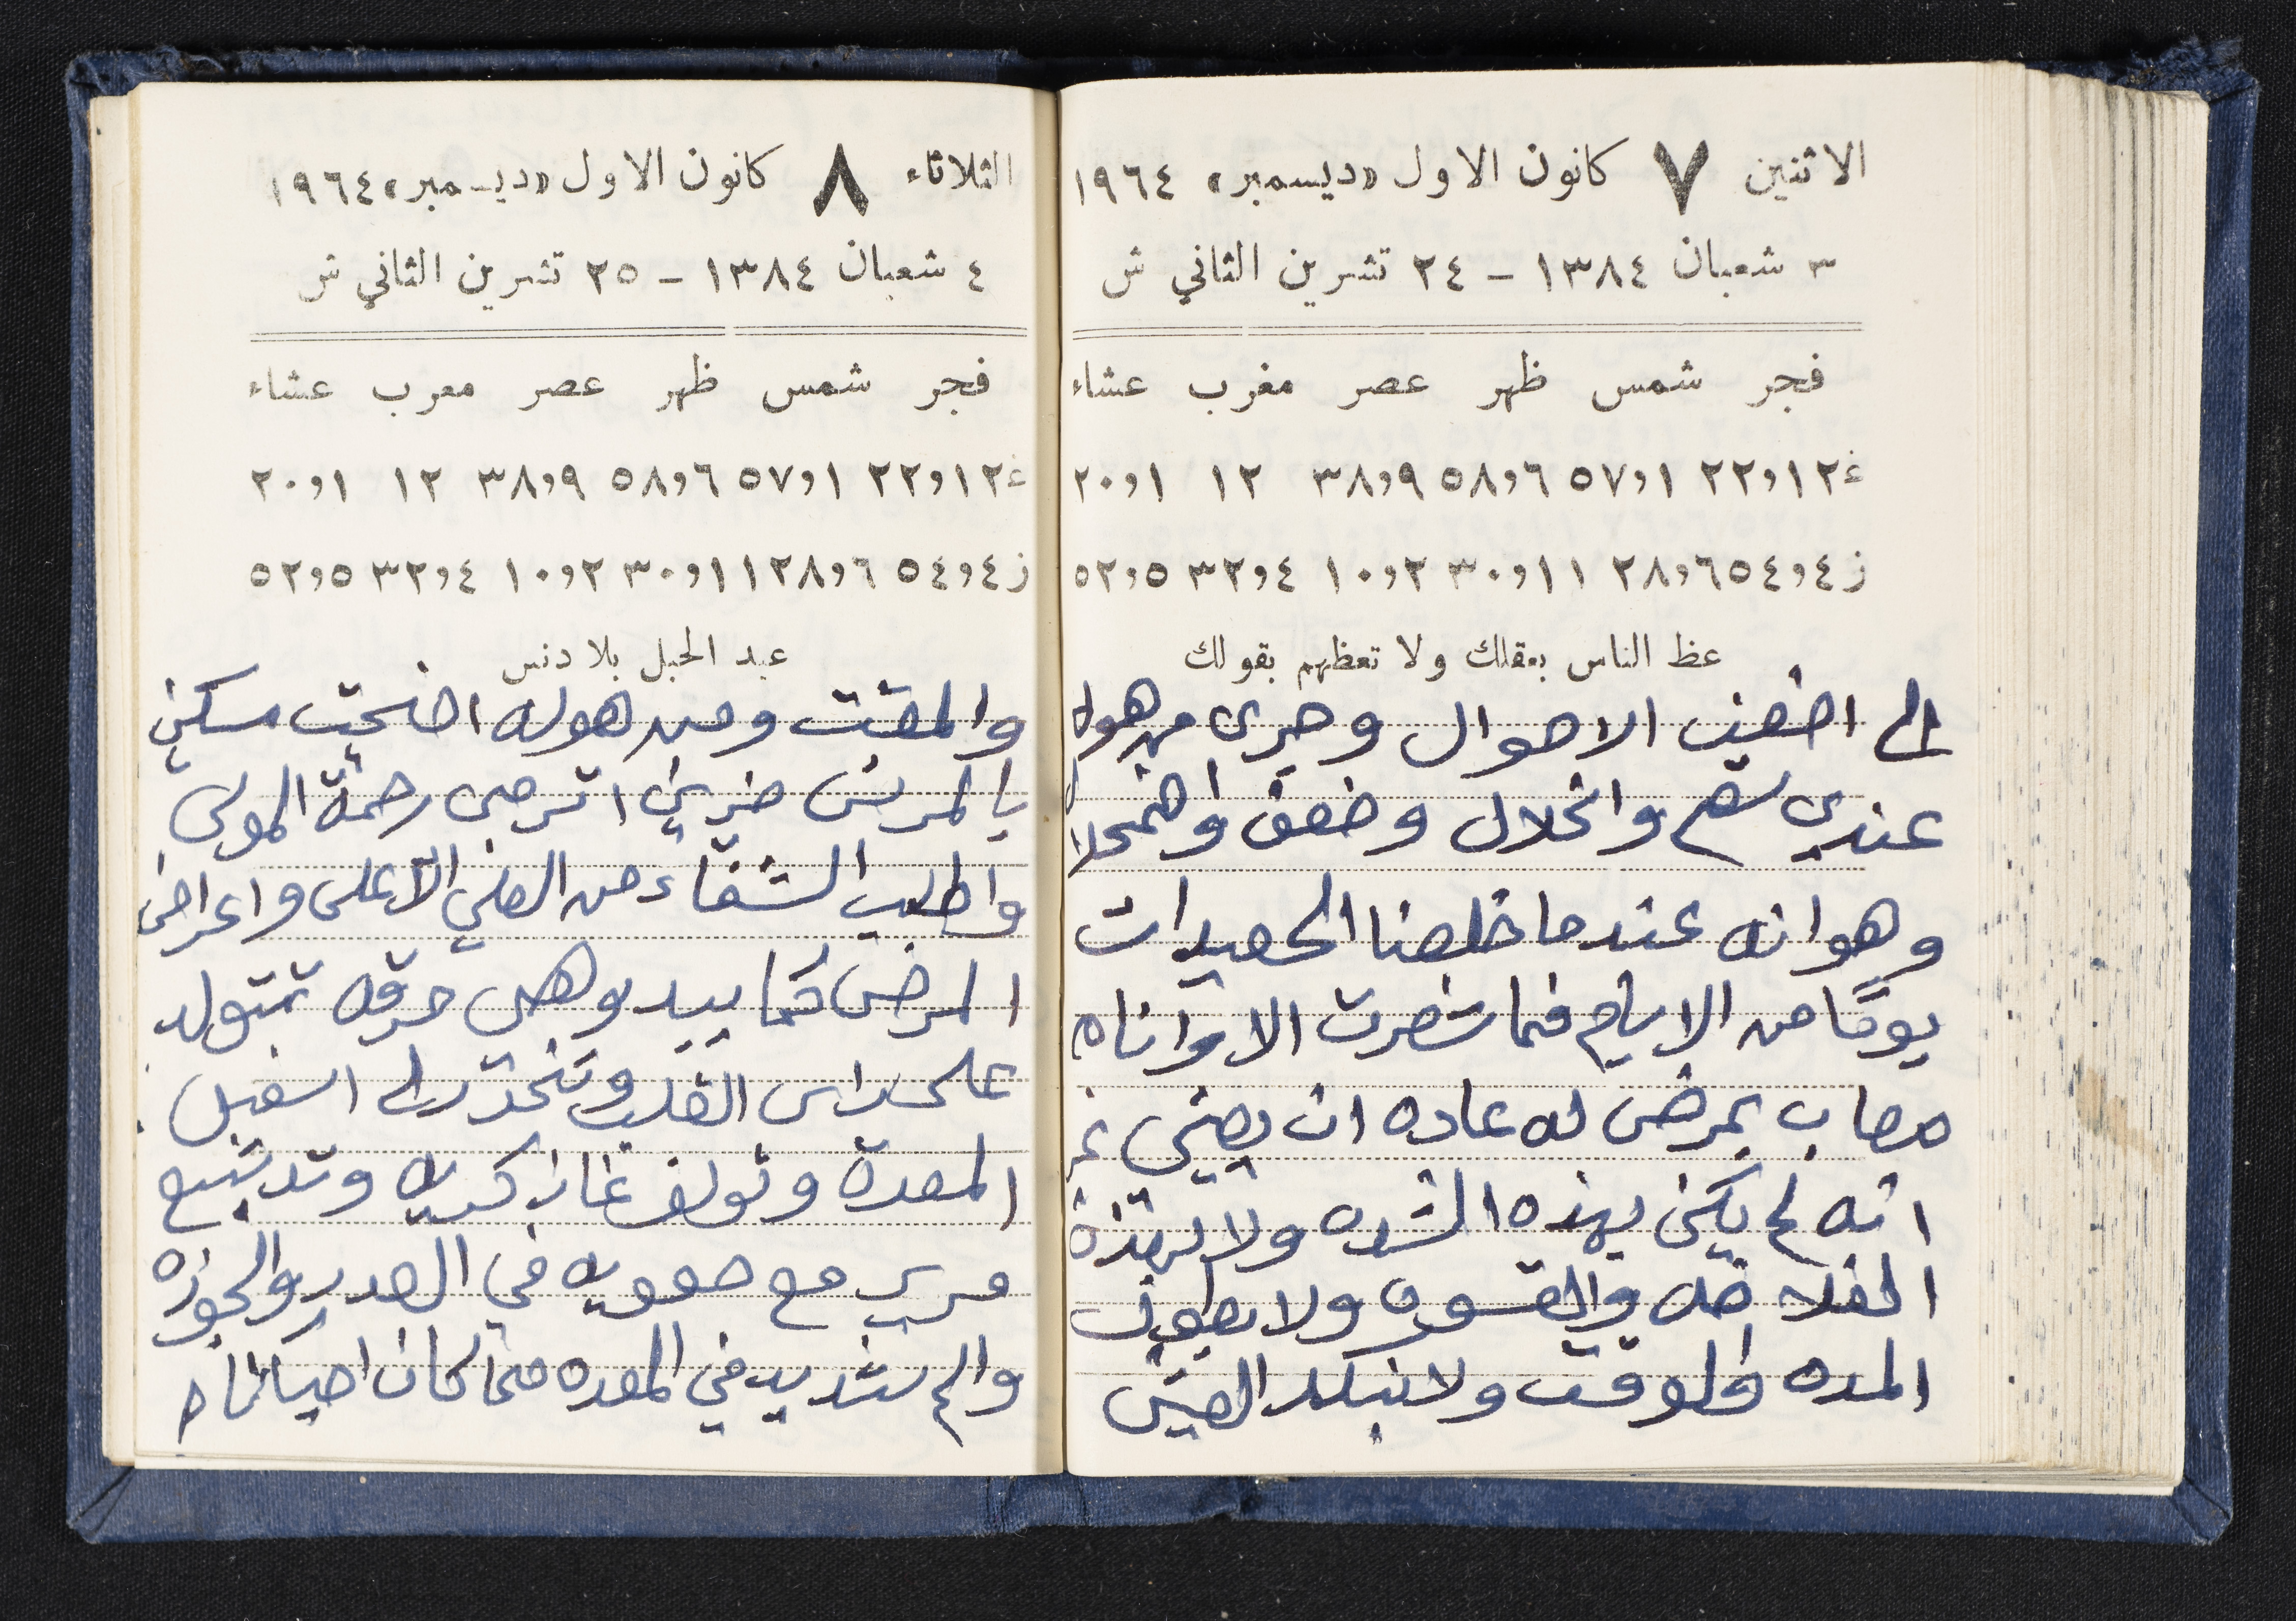 الاثنين ٧ كانون الاول «ديسمبر» ١٩٦٤
٣ شعبان ١٣٨٤ - ٢٤ تشرين الثاني ش
فجر شمس ظهر عصر مغرب عشاء
غ ١٢،٢٢ ١،٥٧ ٦،٥٨ ٩،٣٨ ١٢ ١،٢٠
ز ٤،٥٤ ٦،٢٨ ١١،٣٠ ٢،١٠ ٤،٣٢ ٥،٥٢
عظ الناس بعقلك ولا تعظهم بقولك
الى اضعف الاحوال وجرى من هول
عندي سقم وانحلال وضعف واضمحلال
وهو انه عندما خلصنا الحصيدات
يومًا من الايام فما شعرت الا وانا
مصاب بمرض له عاده ان يجيني غير
انه لم يكن بهذه الشده ولا بهذة
والقسوه ولا بطول
المده والوقت ولا
الثلاثاء ٨ كانون الاول «ديسمبر» ١٩٦٤
٤ شعبان ١٣٨٤ - ٢٥ تشرين الثاني ش
فجر شمس ظهر عصر مغرب عشاء
غ ١٢،٢٢ ١،٥٧ ٦،٥٨ ٩،٣٨ ١٢ ١،٢٠
ز ٤،٥٤ ٦،٢٨ ١١،٣٠ ٢،١٠ ٤،٣٢ ٥،٥٢
عيد الحبل بلا دنس
والمقت ومن هوله اضحيت مسكين
اترجى رحمة المولى
واطلب الشفاء من العلي الأعلى واعراض
المرض كما يبدو هي حرقه تتولد
على راس القلب وتنحدر الى اسفل
المعدة وتولف غاز كريه
مع صعوبه في الصدر والجوزه
والم شديد في المعده مما كان احيانا